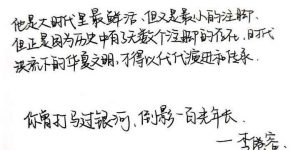 他是大时代里最鲜活、但又是最小的注脚.
但正是因为历史中有了无数个注脚的存在，时代
洪流下的华夏文明，不得以代代演进和传承.
你曾打马过银河，倒影一百光年长.
——李晓容